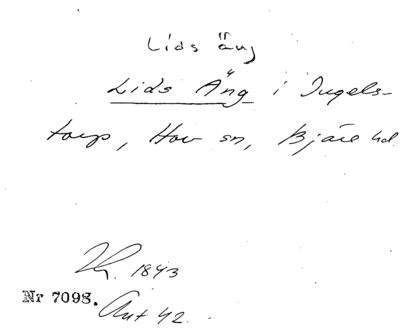 Lids äng
Lids Äng i Ingels-
torp, Hov sn, Bjäre hd.
1843
Nr 7098. Akt 42.